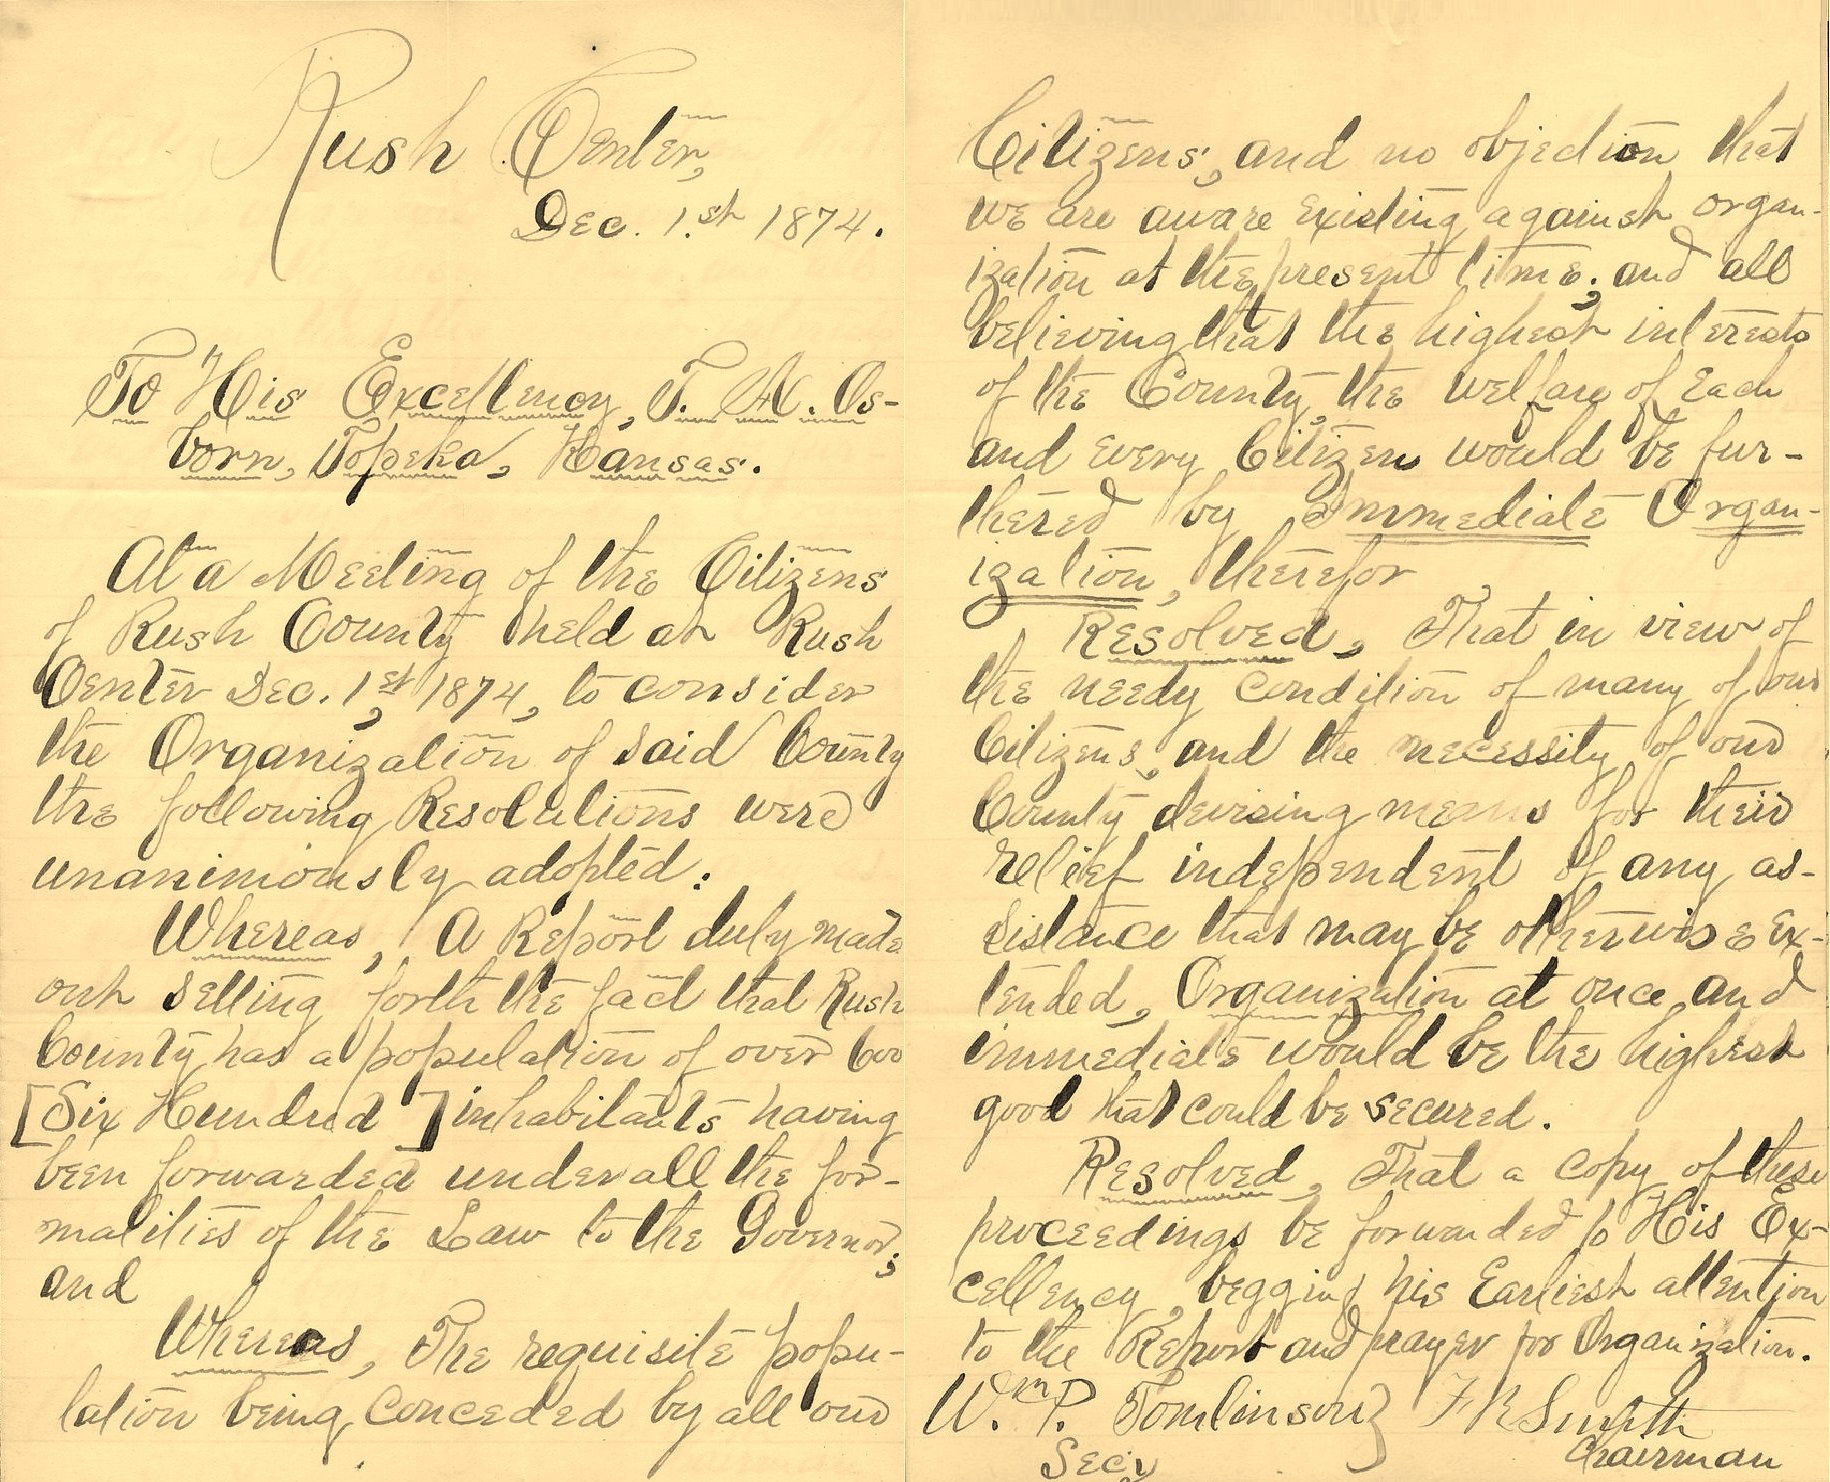 Rush Center,
Dec. 1.st 1874.
To His Excellency, T. A. Os-
born, Topeka, Kansas.
At a Meeting of the Citizens
of Rush County held at Rush
Center Dec. 1st, 1874, to consider
the Organization of said County
the following Resolutions were
unanimously adopted:
Whereas, A Report duly made
out setting forth the fact that Rush
County has a population of over 600
[Six Hundred] inhabitants having
been forwarded under all the for-
malities of the Law to the Governor;
and
Whereas, The requisite popu-
lation being conceded by all our
Citizens, and no objection that
we are aware existing against organ-
ization at the present time; and all
believing that the highest interests
of the County, the welfare of Each
and every Citizen would be fur-
thered by Immediate Organ-
ization, therefor
Resolved, That in view of
the needy condition of many of our
Citizens, and the necessity of our
County devising means for their
relief independent of any as-
sistance that may be otherwise Ex-
tended, Organization at once and
immediate would be the highest
good that could be secured.
Resolved, That a copy of these
proceedings be forwarded to His Ex-
cellency, begging his Earliest attention
to the Report and prayer for Organization.
Wm. P. Tomlinson } F R Smith
Secy Chairman